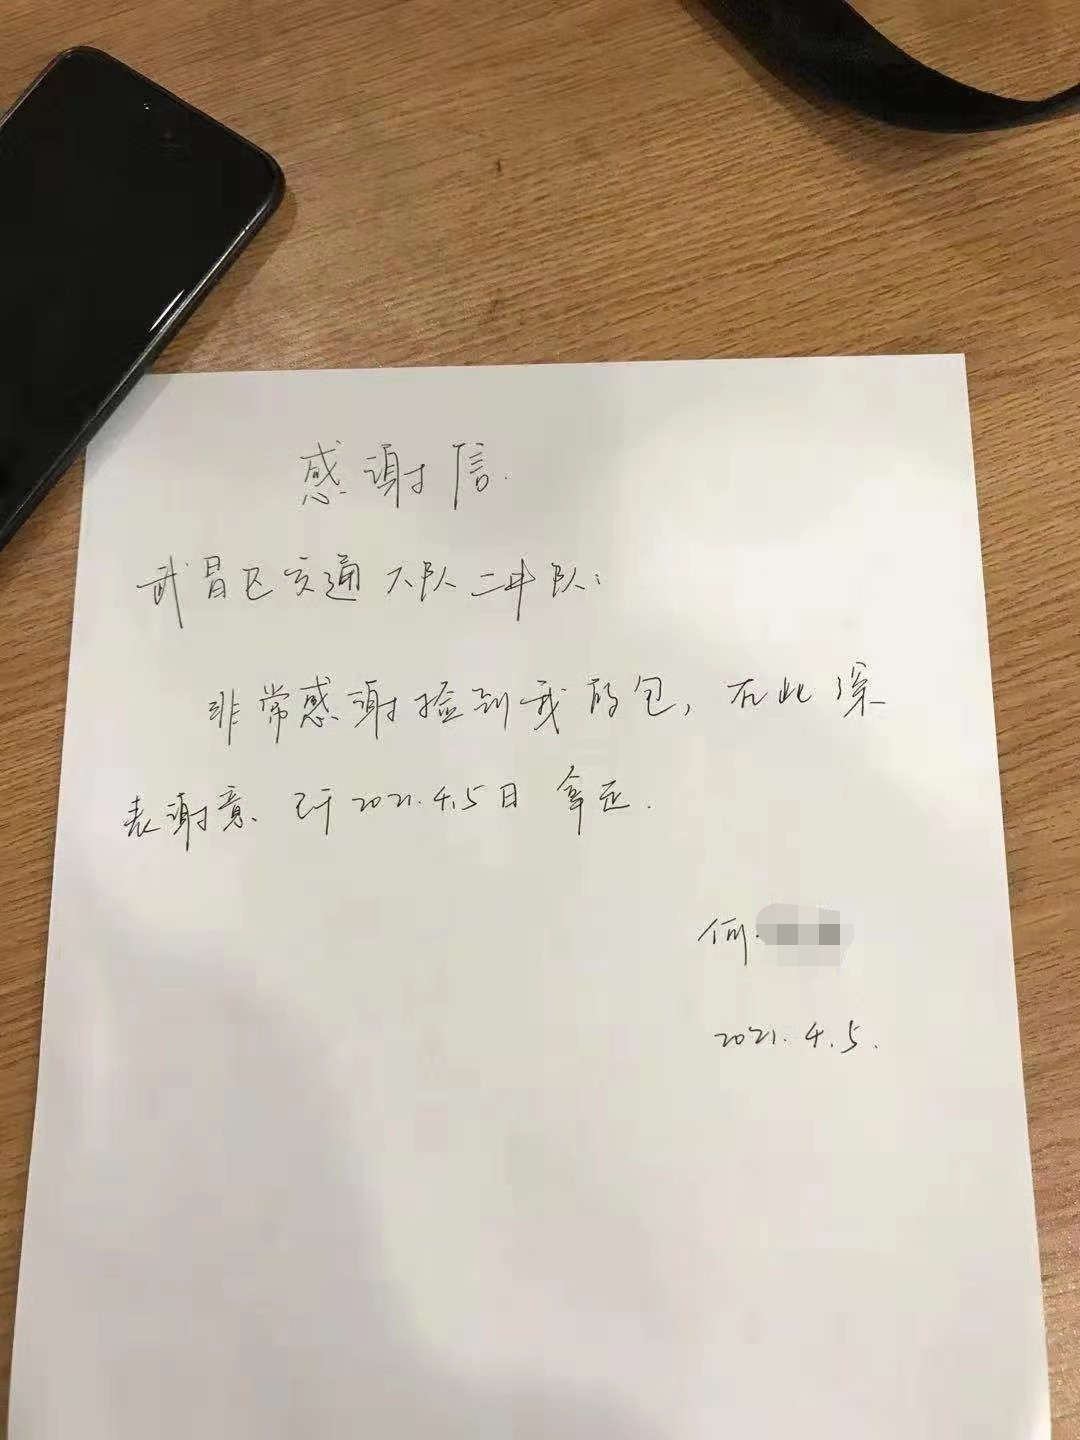 感谢信.
武昌区交通大队二中队:
非常感谢捡到我的包,在此深
表谢意.已于2021.4.5日拿走.
何.
2021.4.5.